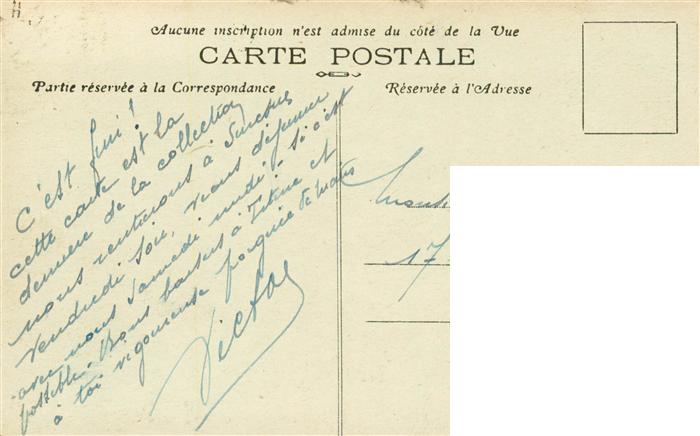 Aucune inscription n'est admise du côté de la Vue
CARTE POSTALE
Partie réservée à la Correspondance
Réservée à l'Adresse
C'est fini!
cette carte est la
dernière de la collection
nous rentrerons à Suresnes
vendredi soir, viens déjeuner
avec nous samedi midi - si c'est
possible. Bons baisers à Titine et
à toi vigoureuse poignée de mains
Victor
17